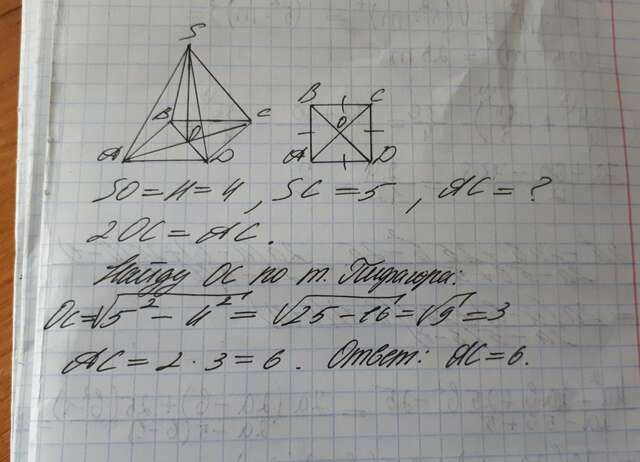 S
B C
B O C
O
A D
A D
SO = H = 4, SC = 5, AC = ?
2OC = AC.
Найду OC по т. Пифагора:
OC = √5² - 4² = √25 - 16 = √9 = 3
AC = 2 · 3 = 6. Ответ: AC = 6.